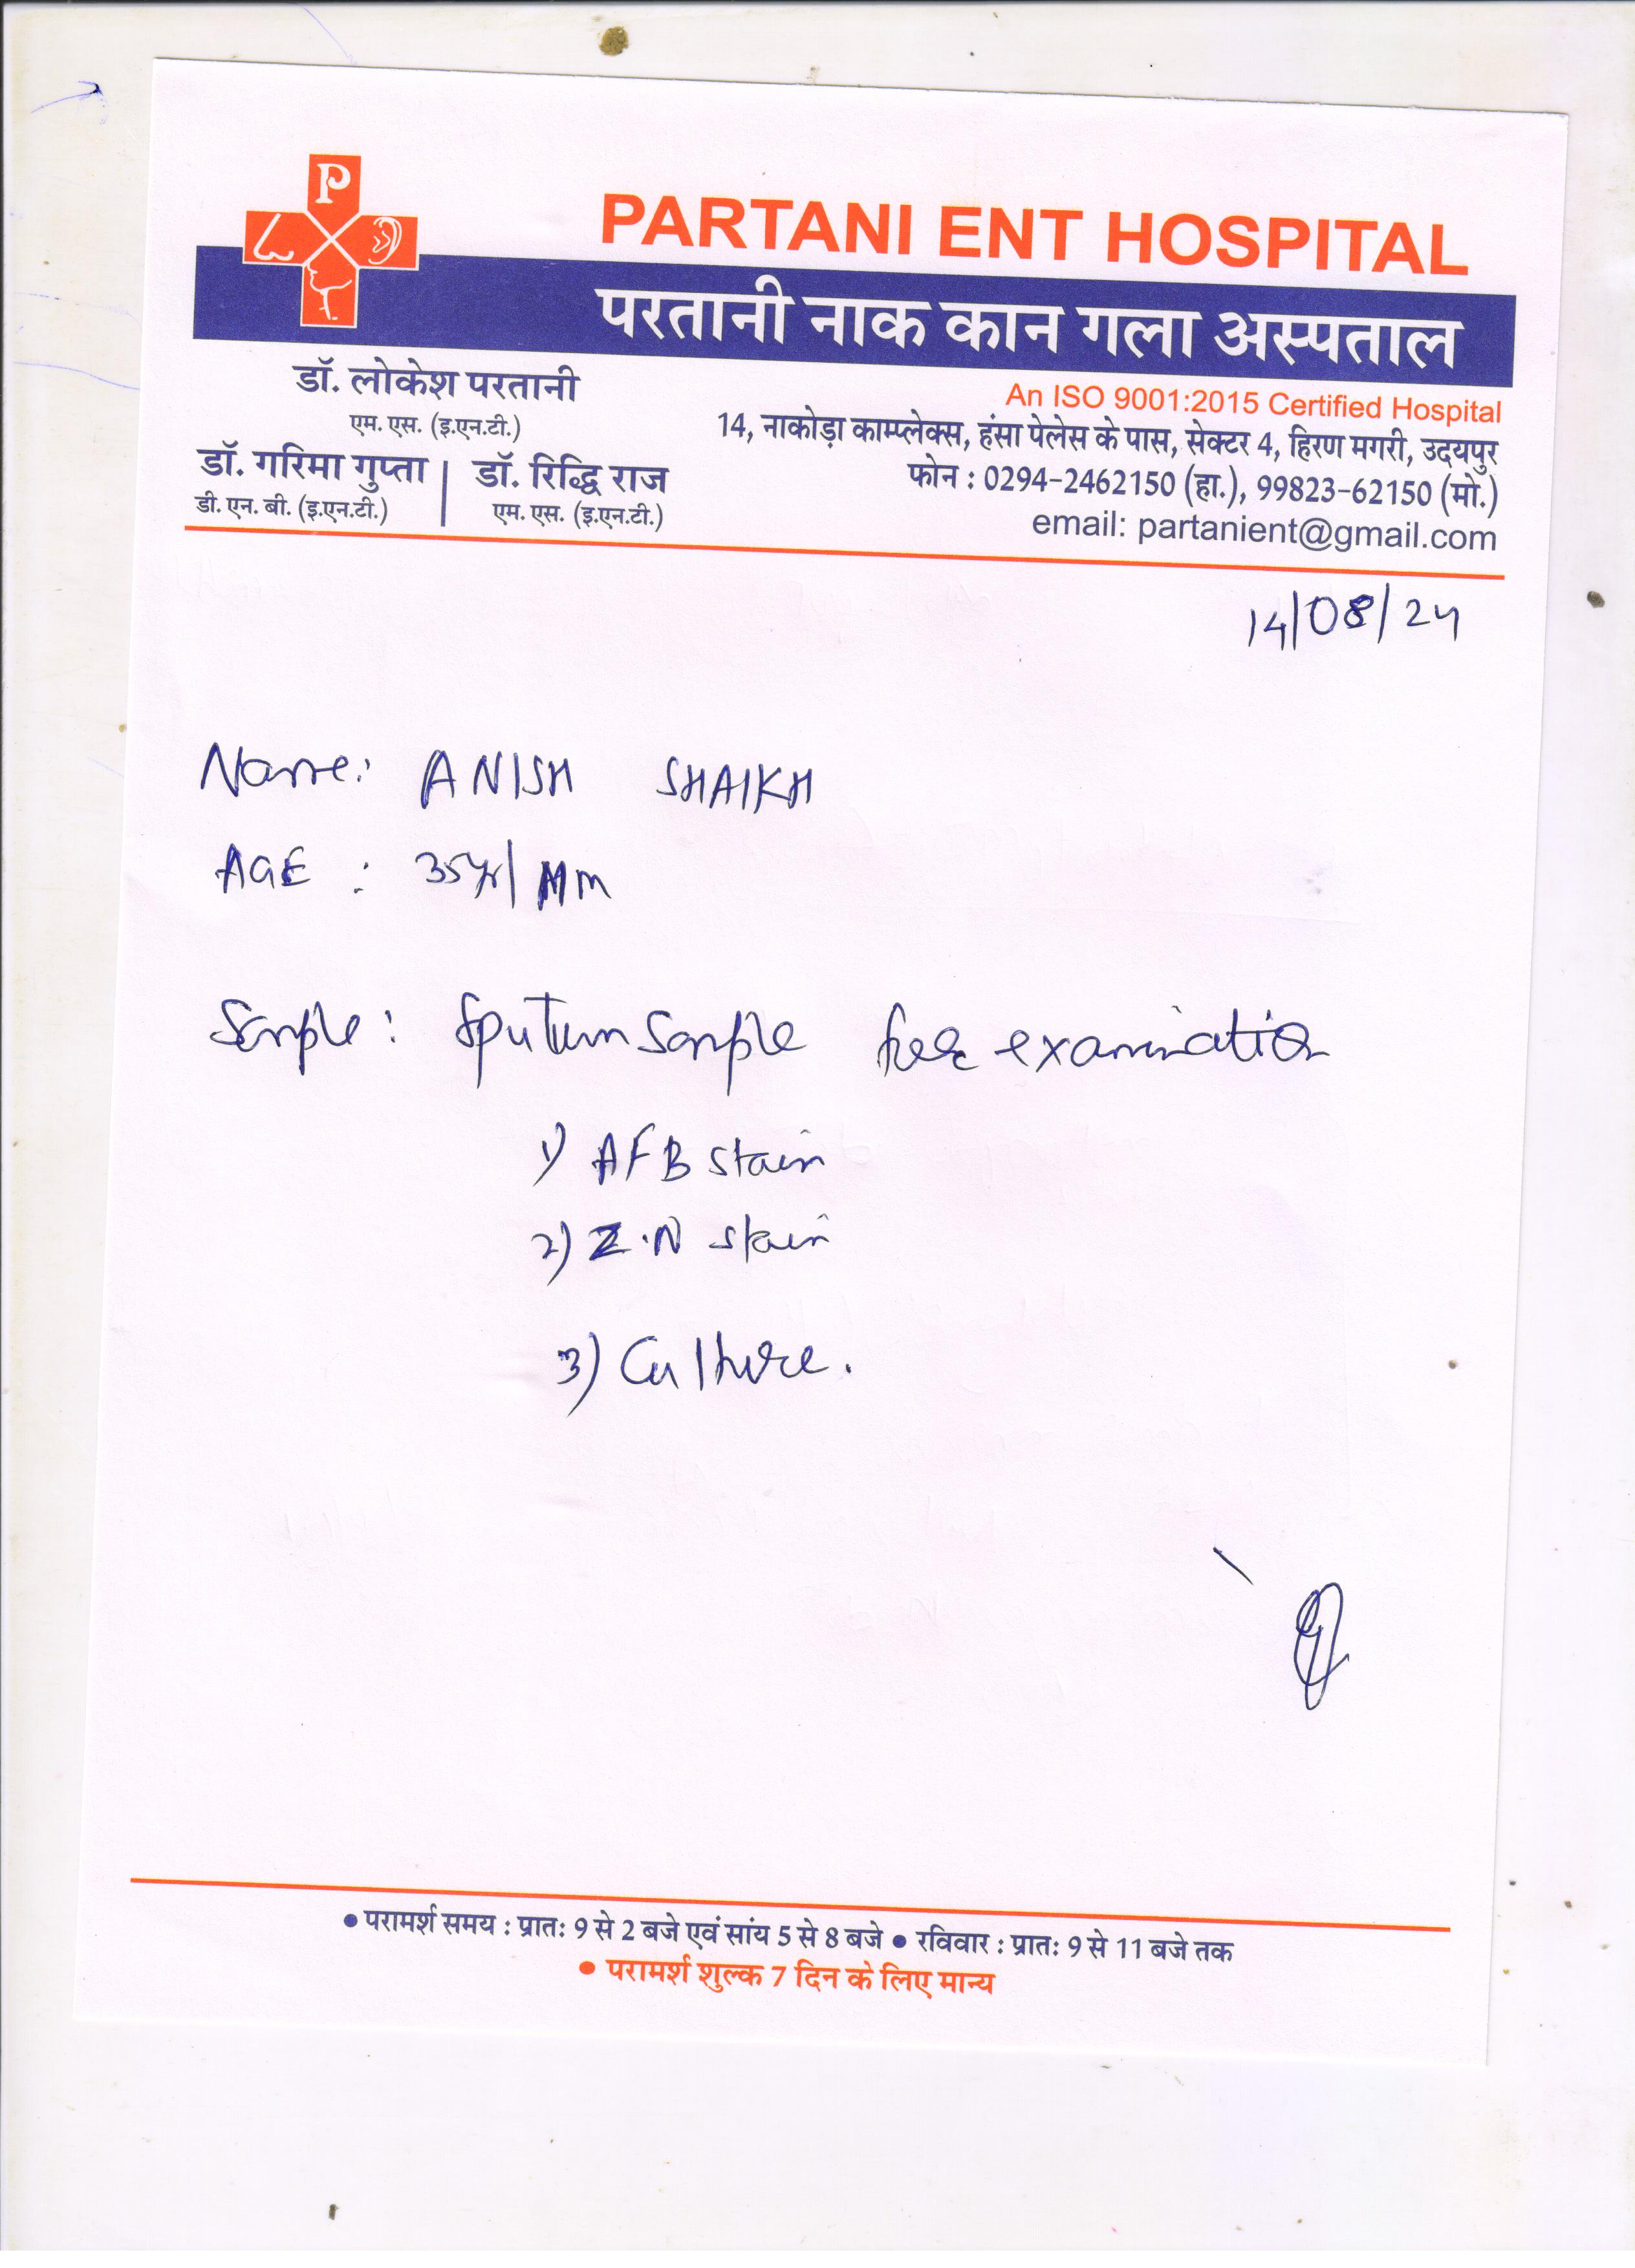 P
PARTANI ENT HOSPITAL
परतानी नाक कान गला अस्पताल
डॉ. लोकेश परतानी
एम. एस. (इ.एन.टी.)
डॉ. गरिमा गुप्ता | डॉ. रिद्धि राज
डी. एन. बी. (इ.एन.टी.) एम. एस. (इ.एन.टी.)
An ISO 9001:2015 Certified Hospital
14, नाकोड़ा काम्प्लेक्स, हंसा पेलेस के पास, सेक्टर 4, हिरण मगरी, उदयपुर
फोन : 0294-2462150 (हा.), 99823-62150 (मो.)
email: partanient@gmail.com
14/08/24
Name: ANISH SHAIKH
AGE : 35yr/ M
Sample: Sputum Sample for examination
1) AFB stain
2) Z.N stain
3) Culture.
• परामर्श समय : प्रातः 9 से 2 बजे एवं सांय 5 से 8 बजे • रविवार : प्रातः 9 से 11 बजे तक
• परामर्श शुल्क 7 दिन के लिए मान्य